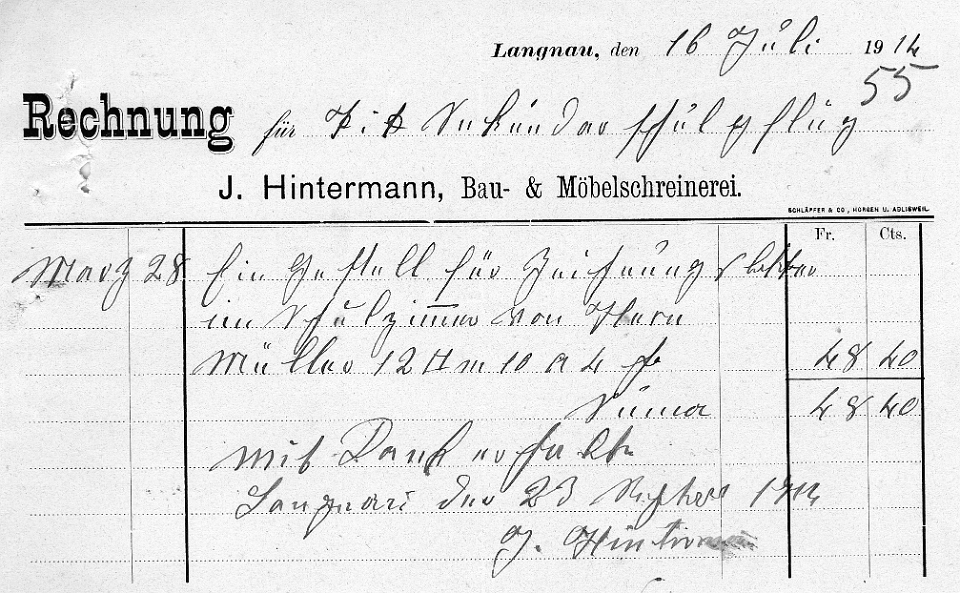 Langnau, den 16 Juli 1914
55
Rechnung für Tit Sekundarschulpfleg
J. Hintermann, Bau- & Möbelschreinerei.
SCHLÄPFER & CO, HORGEN U. ADLISWEIL
Fr. Cts.
März 28 Ein Gestell für Zeichnungsbletter
im Schulzimer von Hern
Müller 12 m 10 a 4 fr 48 40
Suma 48 40
Mit Dank erhalten
Langnau den 23 1914
J. Hintermann